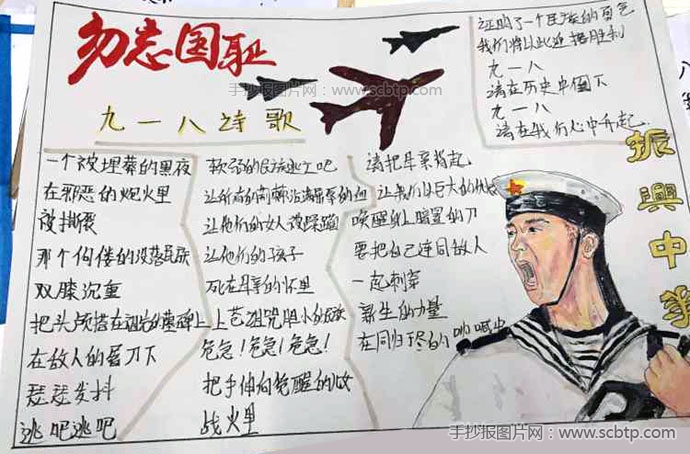 勿忘国耻
手抄报图片网：www.scbtp.com
九一八诗歌
一个被埋葬的黑夜
在邪恶的炮火里
被撕裂
那个佝偻的没落民族
双膝沉重
把头颅搭在祖先的墓碑上
在敌人的屠刀下
瑟瑟发抖
逃吧逃吧
软弱的民族逃亡吧
让所有的荆棘沾满屈辱的血
让他们的女人被蹂躏
让他们的孩子
死在母亲的怀里
上苍诅咒胆小的民族
危急!危急!危急!
把手伸向觉醒的
战火里
请把耳朵捂起
让我们以巨大的
唤醒身上暗置的刀
要把自己连同敌人
一起刺穿
新生的力量
在同归于尽的呐喊中
证明了一个民族的勇气
我们将以此迎接胜利
九一八
请在历史中倒下
九一八
请在我们心中升起
振興中华
手抄报图片网：www.scbtp.com